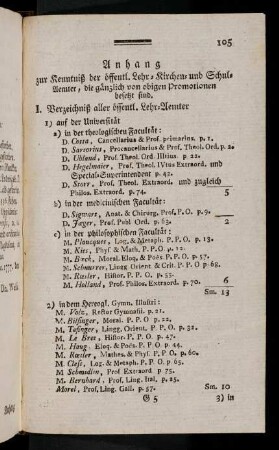 105
Anhang
zur Kenntniß der öffentl. Lehr- Kirchen- und Schul-
Aemter, die gänzlich von obigen Promotionen
besetzt sind.
I. Verzeichniß aller öffentl. Lehr-Aemter
1) auf der Universität
a) in der theologischen Facultät:
D. Cotta, Cancellarius & Prof. primarius. p. 1.
D. Sartorius, Procancellarius & Prof. Theol. Ord. p. 2.
D. Uhland, Prof. Theol. Ord. IIItius p. 22.
D. Hegelmaier, Prof. Theol. IVtus Extraord. und
Special-Superintendent p. 42.
D. Storr, Prof. Theol. Extraord. und zugleich
Philos. Extraord. p. 74. 5
b) in der medicinischen Facultät:
D. Sigwart, Anat. & Chirurg. Prof. P. O. p. 9.
D. Jæger, Prof. Publ. Ord. p. 63. 2
c) in der philosophischen Facultät:
M. Ploucquet, Log. & Metaph. P. P. O. p. 17.
M. Kies, Phys. & Math. P. P. O. p. 12.
M. Bœk, Moral. Eloq. & Poës. P. P. O. p. 57.
M. Schnurrer, Lingg Orient. & Crit. P. P. O. p. 67.
M. Rœsler, Histor. P. P. O. p. 53.
M. Holland, Prof. Philos. Extraord. p. 70. 6
Sm. 13
2) in dem Herzogl. Gymn. Illustri:
M. Volz, Rector Gymnasii. p. 21.
M. Bilfinger, Moral. P. P. O p. 22.
M. Tafinger, Lingg. Orient. P. P. O. p. 32.
M. Le Bret, Histor. P. P. O. p. 47.
M. Haug, Eloq. & Poës. P. P. O p. 44.
M. Rœsler, Mathes. & Phys. P. P. O. p. 60.
M. Cless, Log. & Metaph. P. P. O p. 54.
M. Schmidlin, Prof Extraord p. 75.
M. Bernhard, Prof Ling. Ital. p. 25.
Morel, Prof Ling. Gall. p. 57. Sm. 10
G 5 3) in